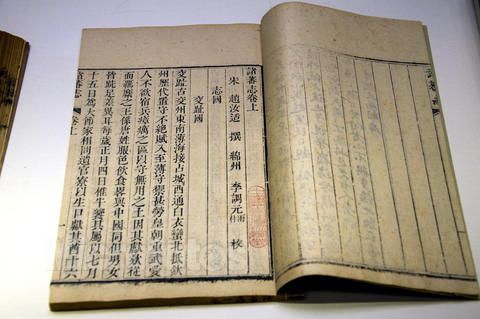 諸蕃志卷上
宋 趙汝适 撰 綿州 李調元雨村 校
志國
交趾國
交趾古交州東南薄海接占城西通白衣蠻北抵欽
州歷代置守不絕賦入至薄守禦甚勞皇朝重武愛
人不欲宿兵瘴癘之區以守無用之土因其獻欵從
而羈縻之王係唐姓服色飲食畧與中國同但男女
皆跣足差異耳每歲正月四日椎牛饗其屬以七月
十五日爲大節家相問遺官寮以生口獻其酋十六
諸蕃志 卷上 一